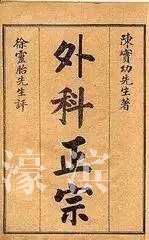 陳實功先生著
外科正宗
徐靈胎先生評
濠滨